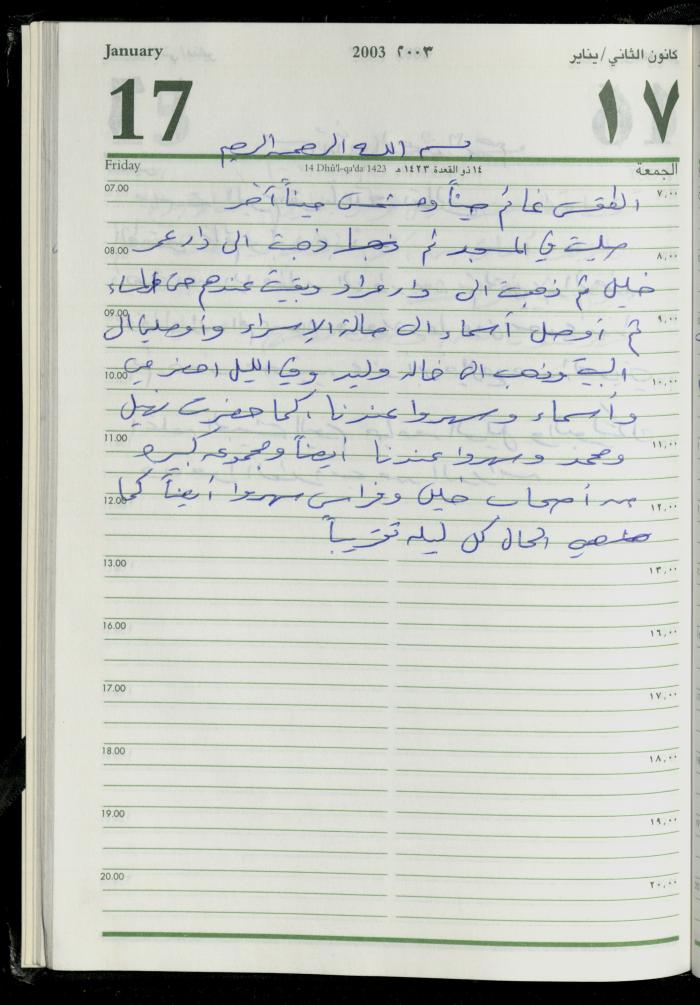 January 2003 ٢٠٠٣ كانون الثاني/يناير
17 ١٧
بسم الله الرحمن الرحيم
Friday 14 Dhû'l-qa'da 1423 ١٤ ذو القعدة ١٤٢٣ هـ الجمعة
07.00 ٧,٠٠
الطقس غائم حيناً ومشمس حيناً آخر
صليت في المسجد ثم ذهبت الى دار عمر
08.00 ٨,٠٠
خليل ثم ذهبت الى دار مراد وبقيت عندهم حتى المساء
09.00 ٩,٠٠
ثم أوصل أسماء الى صالة الإسراء وأوصلنا الى
10.00 ١٠,٠٠
البيت وذهب الى خاله وليد وفي الليل احضر
وأسماء وسهروا عندنا، كما حضرت نهيل
11.00 ١١,٠٠
ومحمد وسهروا عندنا أيضاً ومجموعه كبيره
12.00 ١٢,٠٠
من أصحاب خليل وفراس سهروا أيضاً كما
هي الحال كل ليله تقريباً
13.00 ١٣,٠٠
16.00 ١٦,٠٠
17.00 ١٧,٠٠
18.00 ١٨,٠٠
19.00 ١٩,٠٠
20.00 ٢٠,٠٠